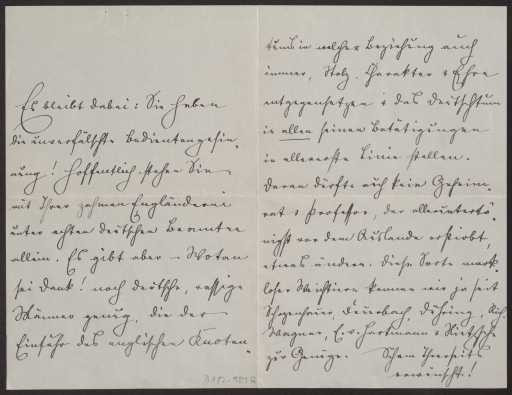 Es bleibt dabei: Sie haben
die unverfälschte Bedientengesin-
nung! Hoffentlich stehen Sie
mit Ihrer zahmen Engländerei
unter echten deutschen Beamten
allein. Es gibt aber – Wotan
sei Dank! noch deutsche, rassige
Männer genug, die der
Einfuhr des englischen Knoten-
tums in welcher Beziehung auch
immer, Stolz, Charakter & Ehre
entgegensetzen & das Deutschtum
in allen seinen Betätigungen
in allererste Linie stellen.
Daran dürfte auch kein Geheim-
rat & Professor, der alleruntertä-
nigst vor dem Auslande erstirbt,
etwas ändern. Diese Sorte mark-
loser Wichtiger kennen wir ja seit
Schopenhauer, Feuerbach, Dühring, Rich.
Wagner, E. v. Hartmann & Nietzsche
zur Genüge.
erwünscht!
B182-